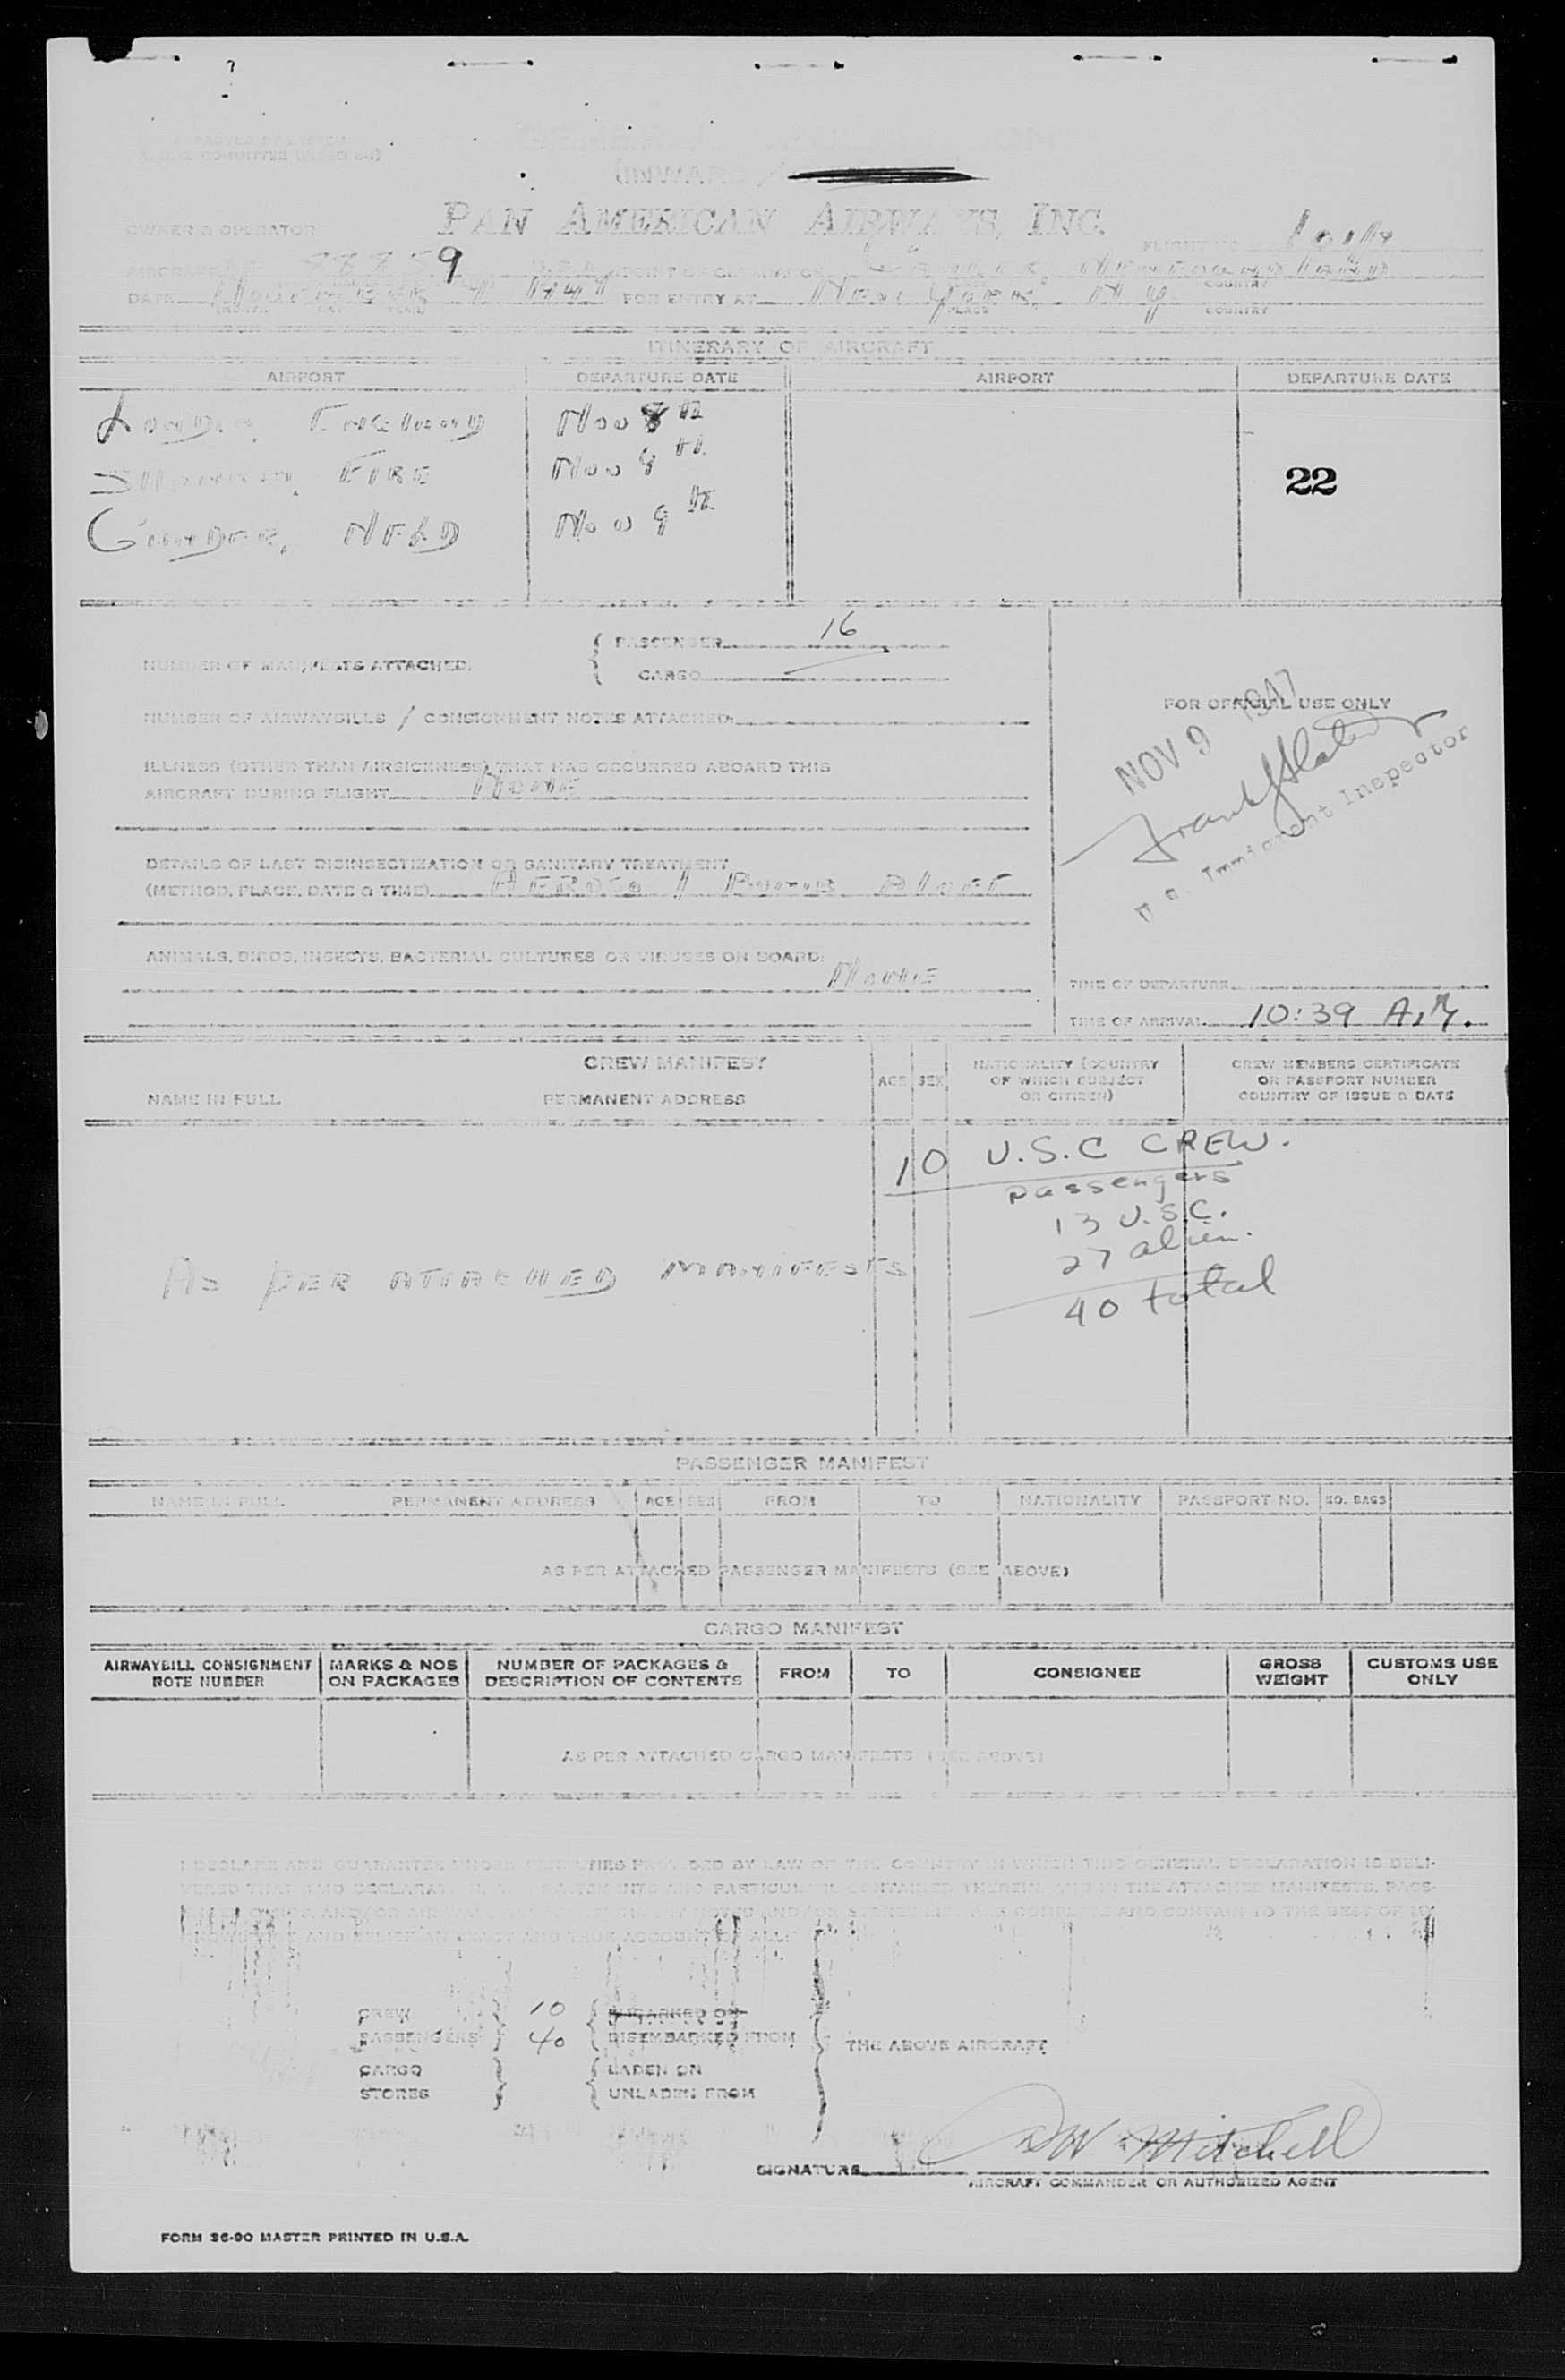 PAN AMERICAN AIRWAYS, INC.
OWNER & OPERATOR
FLIGHT NO
AIRCRAFT 9 U.S.A. POINT OF CLEARANCE
COUNTRY
DATE November 9 1947 FOR ENTRY AT New York, N.Y.
(MONTH DAY YEAR) PLACE COUNTRY
ITINERARY OF AIRCRAFT
AIRPORT DEPARTURE DATE AIRPORT DEPARTURE DATE
London, England Nov 8th
Shannon, EIRE Nov 9th
22
Gander, NFLD Nov 9th
NUMBER OF MANIFESTS ATTACHED:
PASSENGER 16
CARGO
FOR OFFICIAL USE ONLY
NOV 9 1947
Immigrant Inspector
NUMBER OF AIRWAYBILLS / CONSIGNMENT NOTES ATTACHED:
ILLNESS (OTHER THAN AIRSICKNESS) THAT HAS OCCURRED ABOARD THIS
AIRCRAFT DURING FLIGHT NONE
DETAILS OF LAST DISINSECTIZATION OR SANITARY TREATMENT
(METHOD, PLACE, DATE & TIME)
ANIMALS, BIRDS, INSECTS, BACTERIAL CULTURES OR VIRUSES ON BOARD:
NONE
TIME OF DEPARTURE
TIME OF ARRIVAL 10:39 A.M.
CREW MANIFEST
NAME IN FULL PERMANENT ADDRESS AGE SEX
NATIONALITY (COUNTRY
OF WHICH SUBJECT
OR CITIZEN)
CREW MEMBERS CERTIFICATE
OR PASSPORT NUMBER
COUNTRY OF ISSUE & DATE
10 U.S.C CREW.
passengers
13 U.S.C.
27 alien.
40 total
As PER ATTACHED MANIFESTS
PASSENGER MANIFEST
NAME IN FULL PERMANENT ADDRESS AGE SEX FROM TO NATIONALITY PASSPORT NO. NO. BAGS
AS PER ATTACHED PASSENGER MANIFESTS (SEE ABOVE)
CARGO MANIFEST
AIRWAYBILL CONSIGNMENT
NOTE NUMBER
MARKS & NOS
ON PACKAGES
NUMBER OF PACKAGES &
DESCRIPTION OF CONTENTS
FROM TO CONSIGNEE
GROSS
WEIGHT
CUSTOMS USE
ONLY
AS PER ATTACHED CARGO MANIFESTS (SEE ABOVE)
I DECLARE AND GUARANTEE UNDER PENALTIES PROVIDED BY LAW OF THE COUNTRY IN WHICH THIS GENERAL DECLARATION IS DELI-
AND CONTAIN TO THE BEST OF MY
KNOWLEDGE AND BELIEF AN EXACT AND TRUE ACCOUNT OF ALL:
CREW 10 EMBARKED ON
PASSENGERS 40 DISEMBARKED FROM
THE ABOVE AIRCRAFT
CARGO LADEN ON
STORES UNLADEN FROM
SIGNATURE DW Mitchell
AIRCRAFT COMMANDER OR AUTHORIZED AGENT
FORM 36-90 MASTER PRINTED IN U.S.A.